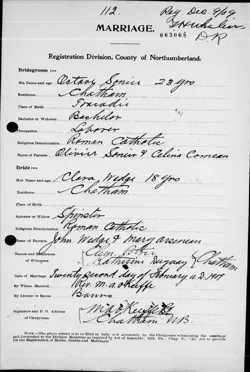 112. Reg Dec 9/09
MARRIAGE.
003068 DR
Registration Division, County of Northumberland.
Bridegroom :—
His Name and Age Octave Sonier 23 yrs
Residence Chatham
Place of Birth Tracadie
Bachelor or Widower Bachelor
Occupation Laborer
Religious Denomination Roman Catholic
Names of Parents Olivier Sonier & Celina Comeau
Bride :—
Her Name and Age Clara Wedge 18 yrs
Residence Chatham
Place of Birth
Spinster or Widow Spinster
Religious Denomination Roman Catholic
Names of Parents John Wedge & Mary Arseneau
Names and Residences of Witnesses
Katherine Duguay Chatham
Date of Marriage Twenty second day of February A.D. 1909
By Whom Married Rev. M. A. O'Keeffe
By License or Banns Banns
Signature and P. O. Address
Chatham N.B.